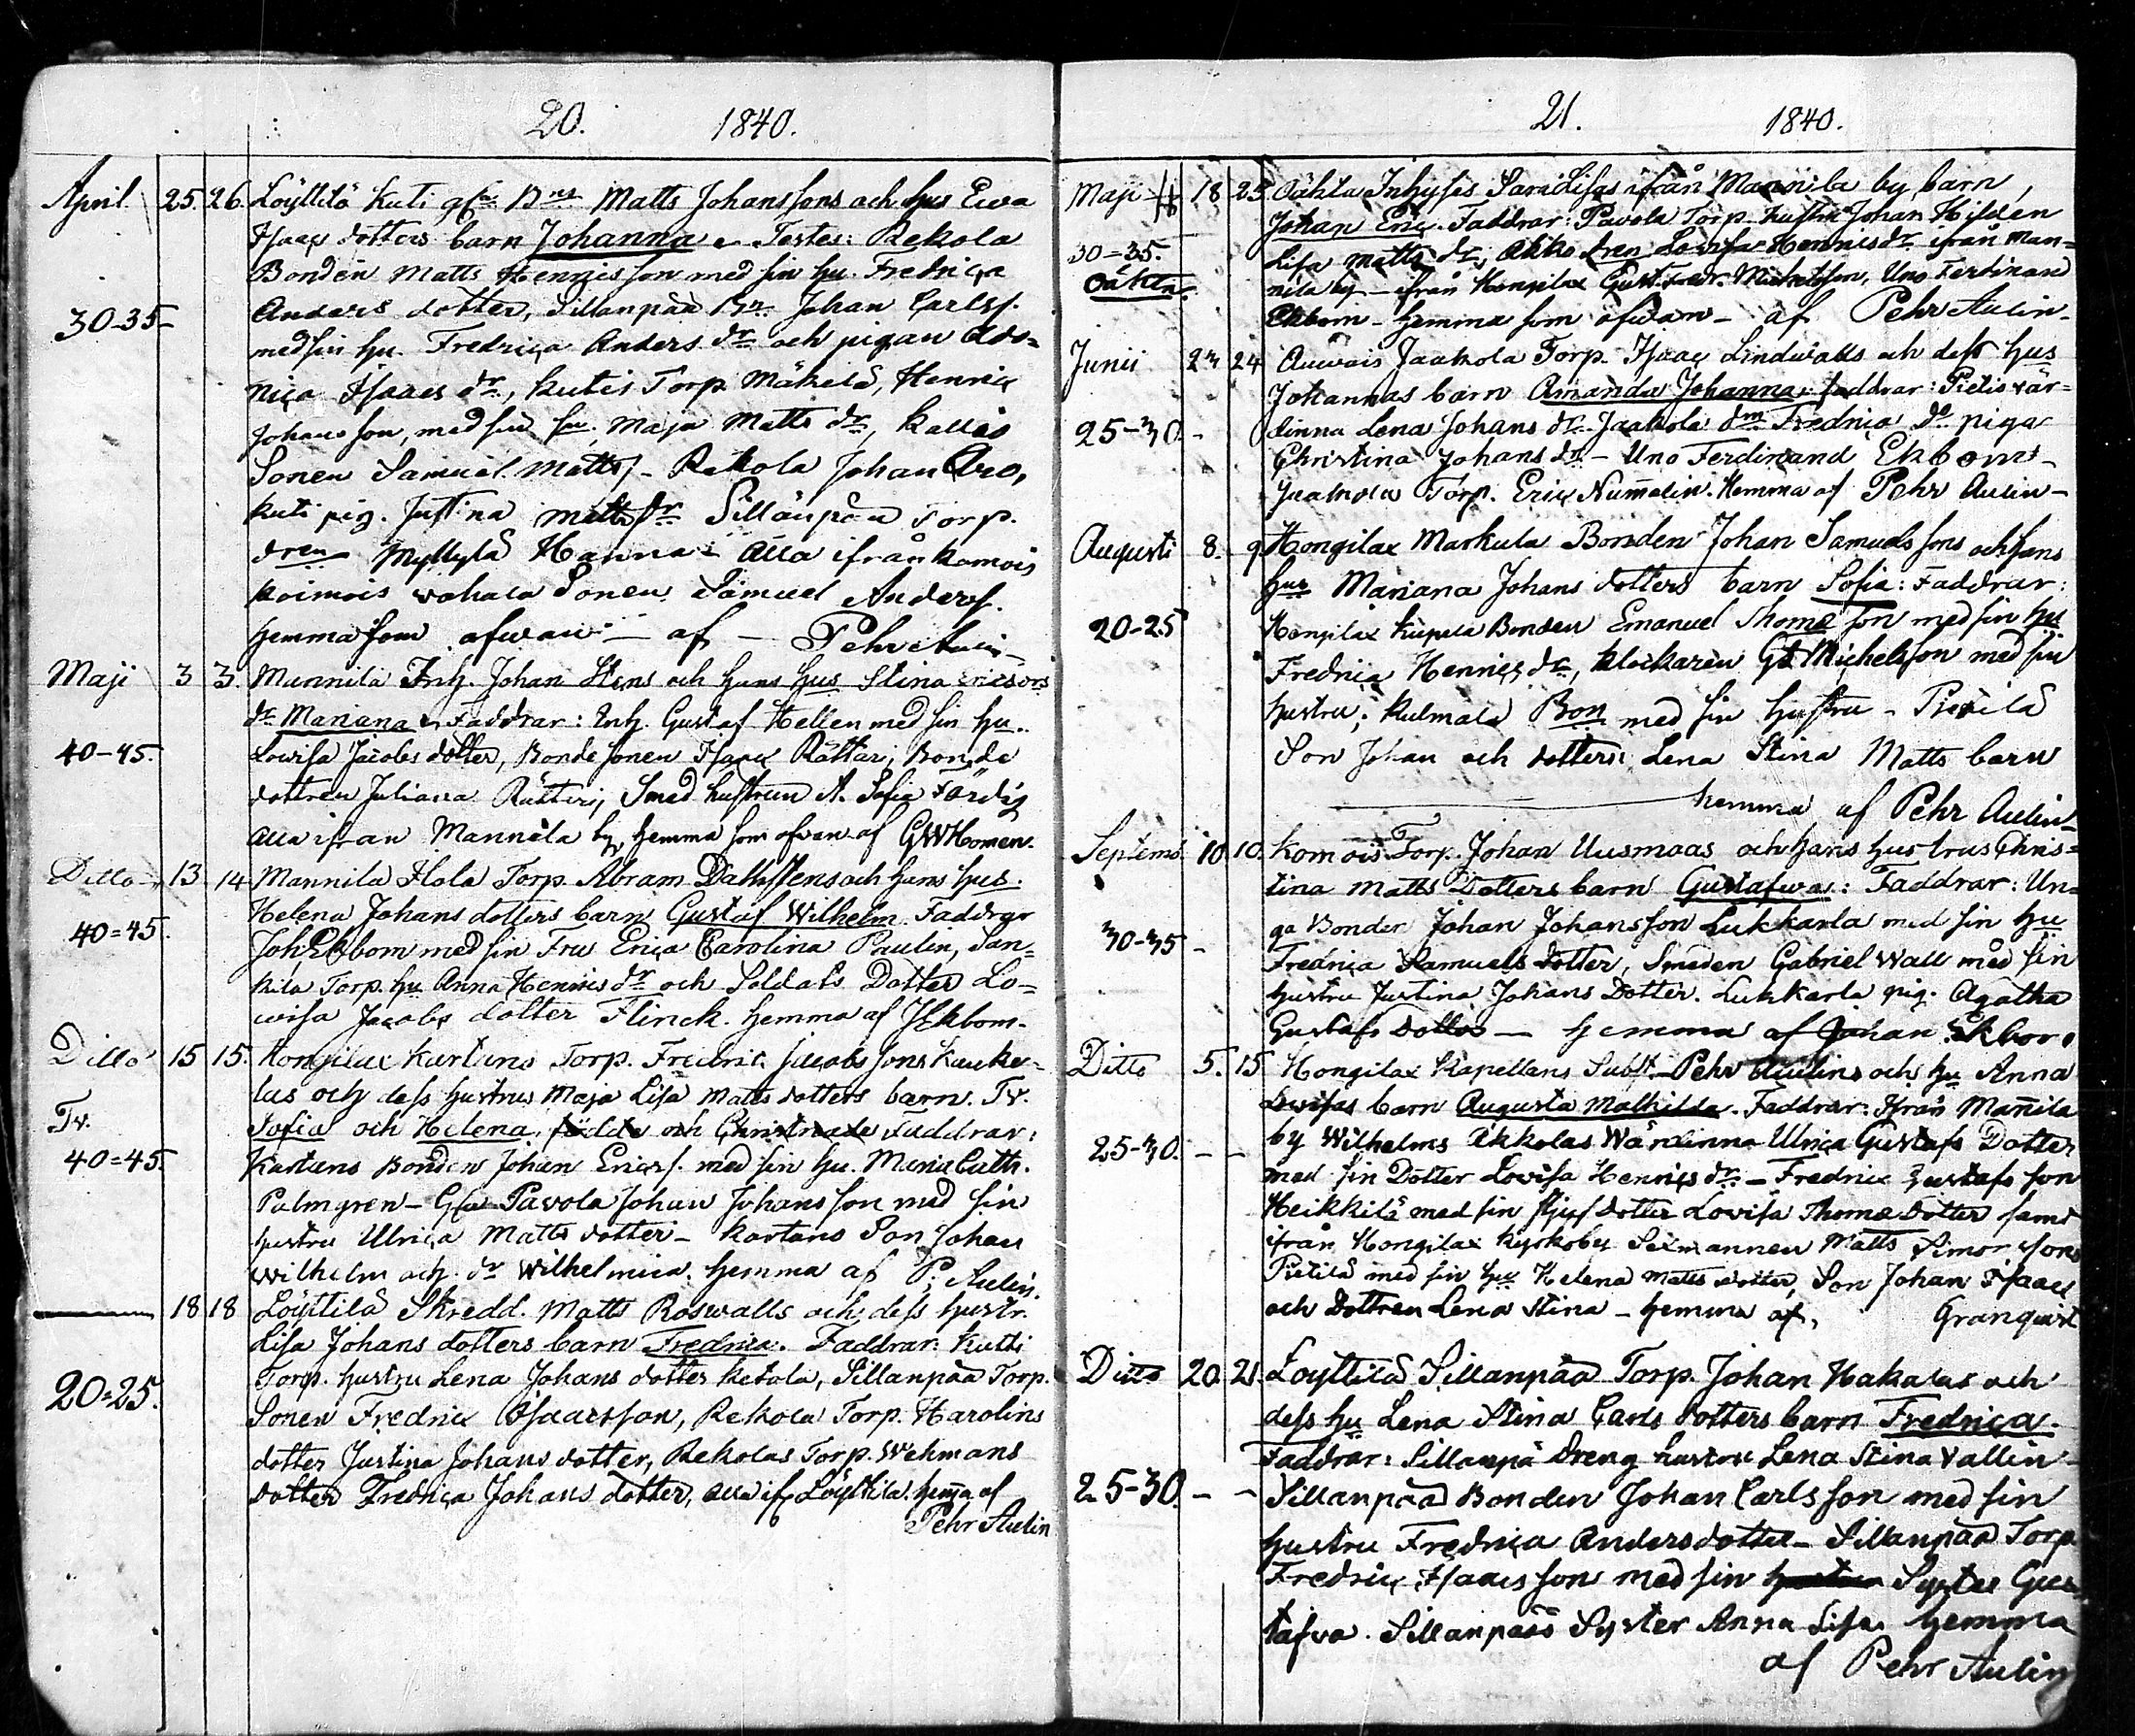 20. 1840.
April. 25. 26. Löyttilä Kuti gfn Bns Matts Johanssons och hus Ewa
Isacs dotters barn Johanna. Testes: Rekola
Bonden Matts Hennisson med sin hu. Fredrica
30-35- Anders dotter, Sillanpää Bn Johan Carlss.
med sin hu. Fredrica Anders dr och pigan
Isaacs dr, Kutis Torp Mäkelä, Henric
Johansson, med sin hu. Maja Matts dr, Kallis
Sonen Samuel Matts. - Rekola Johan
Kuti pig. Justina Matts dr Sillänpää Torp.
dren Myllylä Hanna - Alla ifrån Komois
Sonen Samuel Anders.
hemma som ofwan - af - Pehr Aulin -
Maji 3 3. Mannila Inh. Johan Stens och hans hus Stina
dr Mariana. Faddrar: Inh. Gustaf Hellen med sin hu.
40-45. Lowisa Jacobs dotter, Bonde sonen Isaac Rättari, Bonde
dottren Juliana Rätteri, Smed hustrun A. Sofia Färdig
alla ifrån Mannila by hemma som ofwan af GWHomen.
Ditto 13 14 Mannila Hola Torp. Abram Dahlstens och hans hus.
Helena Johans dotters barn Gustaf Wilhelm. Faddrar
40=45. Joh. Ekbom med sin Fru Erica Carolina Paulin, San=
kila Torp. hu Anna Henrics dr och Soldats Dotter Lo=
wisa Jacobs dotter Flinck. hemma af J. Ekbom.
Ditto 15 15. Kongilax Kartans Torp. Fredric Jacobs sons
och dess hustrus Maja Lisa Matts dotters barn. Tv.
Tv. Sofia och Helena. födde och Christnade Faddrar:
40=45. Kartans Bonden Johan Ericss. med sin hu. Maria Cath.
Palmgren - Pavola Johan Johansson med sin
hustru Ulrica Matts dotter - Kartans Son Johan
Wilhelm och dr Wilhelmina. hemma af P. Aulin.
18 18 Löyttilä Skredd. Matts Roswalls och dess hustr.
Lisa Johans dotters barn Fredrica. Faddrar: Kutti
20=25. Torp. hustru Lena Johans dotter Ketola, Sillanpää Torp.
Sonen Fredric Isacsson, Rekola Torp. Harolins
dotter Justina Johans dotter, Rekolas Torp. Wehmans
dotter Fredrica Johans dotter, alla ifr Löyttilä. hemma af
Pehr Aulin
21. 1840.
Maji 18 25 Oähta Inhyses Sara Lisas ifrån Mannila by, barn,
Johan Eric. Faddrar: Pavola Torp. hustru Johan Hilden
30=35. Lisa Matts dr, Akko dren Lowisa Hennis dr ifrån Man=
Oähta. nila by - ifrån Hongilax Gust. Fredr. Michelsson, Uno Ferdinand
Ekbom - hemma som ofwan - af Pehr Aulin-
Junii 23 24 Auwais Jaakola Torp. Isaac Lindwalls och dess hus
Johannas barn Amanda Johanna. faddrar: Pietis wär=
25-30.- dinna Lena Johans dr. Jaakola dm Fredrica, do piga
Christina Johans dr - Uno Ferdinand Ekbom -
Jaakola Torp. Eric Numelin. Hemma af Pehr Aulin -
Augusti 8. 9 Hongilax Markula Bonden Johan Samuels sons och hans
hus Mariana Johans dotters barn Sofia: Faddrar:
20-25 Hongilax Kupula Bonden Emanuel Thome son med sin hu
Fredrica Hennics dr, klockaren Gt Michelsson med sin
hustru; Kulmala Bon med sin hustru - Pietilä
Son Johan och dottern Lena Stina Matts barn
hemma af Pehr Aulin-
Septemb. 10 10. Komois Torp. Johan Uusmaas och hans hustrus Chris=
tina Matts Dotters barn Gustafwa: Faddrar: Un=
30-35 - ga Bonder Johan Johansson Lukkarla med sin hu
Fredrica Samuels dotter, Smeden Gabriel Wall med sin
hustru Justina Johans Dotter. Lukkarla pig. Agatha
Gustafs Dotter - hemma af Johan Ekbom
Ditto 5. 15 Hongilax Kapellans Subst. Pehr Aulins och hu Anna
Lowisas barn Augusta Mathilda. Faddrar: Ifrån Mannila
25-30. - - by Wilhelms Akkolas Wärdinna Ulrica Gustafs Dotter
med sin Dotter Lovisa Henrics dr - Fredric Gustafs son
Heikkilä med sin Styf dotter Lovisa Thome Dotter samt
ifrån Hongilax Kyrkoby Sexmannen Matts Simonsson
Pietilä med sin hu Helena Matts dotter, Son Johan Isaac
och Dottren Lena Stina - hemma af, Granqvist
Ditto 20. 21. Löyttilä Sillanpää Torp. Johan Hakalas och
dess hu Lena Stina Carls dotters barn Fredrica.
Faddrar: Sillanpä Dreng hustru Lena Stina Vallin
25-30. - - Sillanpää Bonden Johan Carlsson med sin
hustru Fredrica Andersdotter - Sillanpää Torp
Fredric Isaacsson med sin Syster Gus=
tafwa. Sillanpääs Syster Anna Lisa. hemma
af Pehr Aulin